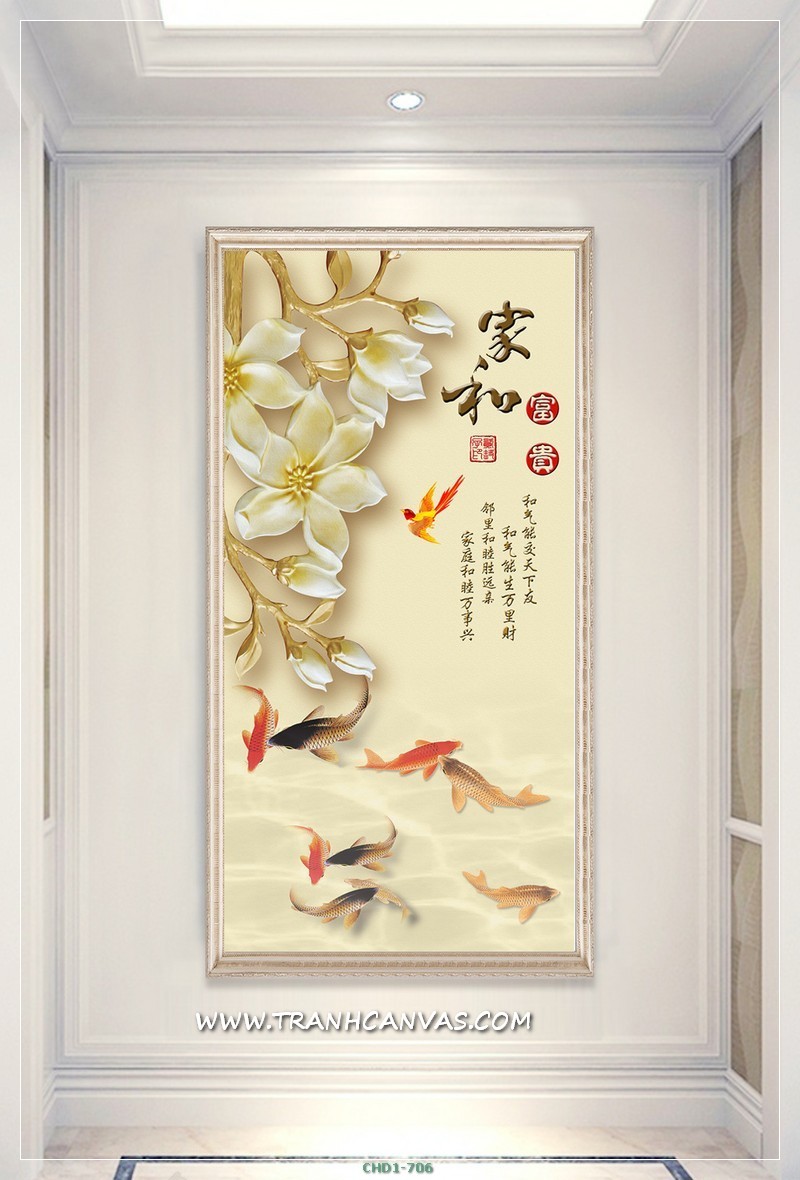 家和
富
貴
和气能交天下友
和气能生万里财
邻里和睦胜远亲
家庭和睦万事兴
WWW.TRANHCANVAS.COM
CHD1-706